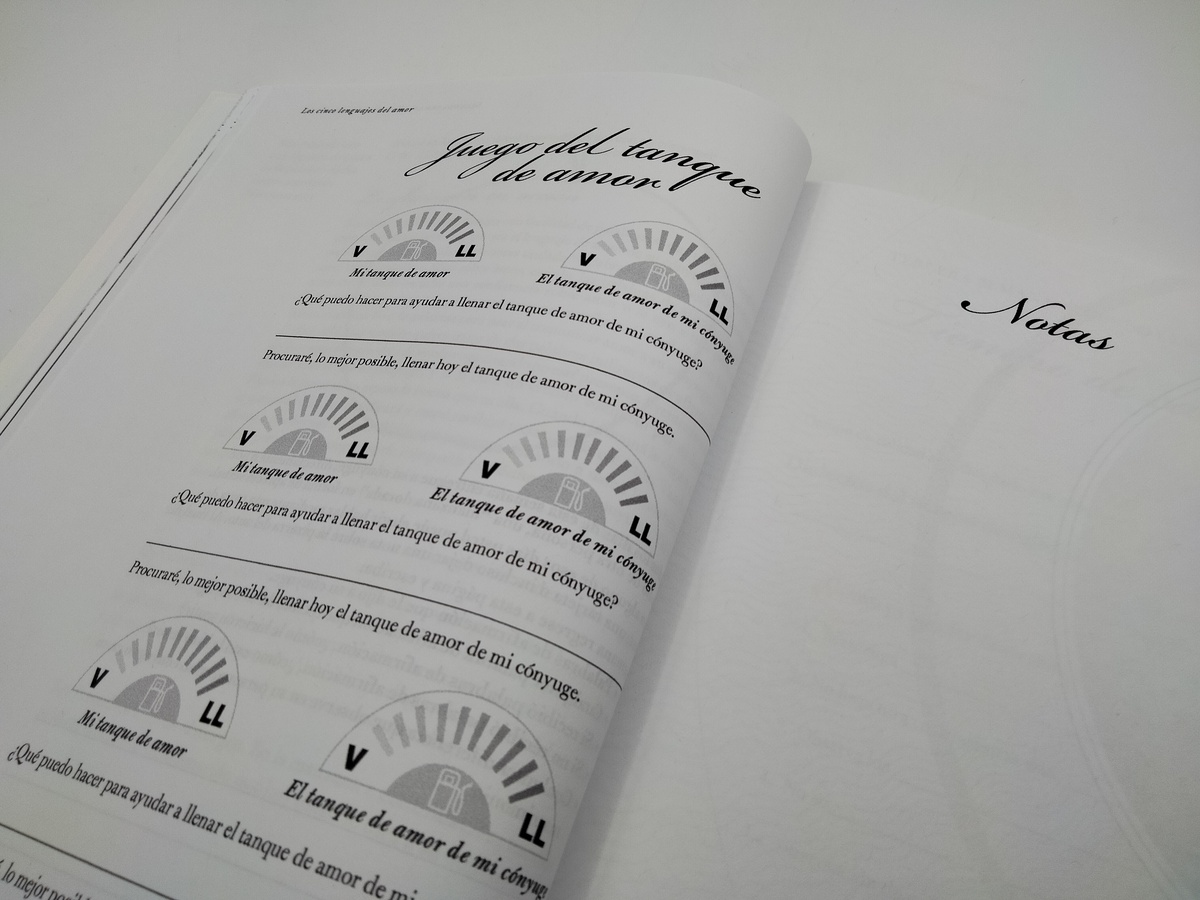 Los cinco lenguajes del amor
Juego del tanque
de amor
V LL
Mi tanque de amor
V LL
El tanque de amor de mi cónyuge
¿Qué puedo hacer para ayudar a llenar el tanque de amor de mi cónyuge?
Procuraré, lo mejor posible, llenar hoy el tanque de amor de mi cónyuge.
V LL
Mi tanque de amor
V LL
El tanque de amor de mi cónyuge
¿Qué puedo hacer para ayudar a llenar el tanque de amor de mi cónyuge?
Procuraré, lo mejor posible, llenar hoy el tanque de amor de mi cónyuge.
V LL
Mi tanque de amor
V LL
El tanque de amor de mi cónyuge
¿Qué puedo hacer para ayudar a llenar el tanque de amor de mi
lo mejor
Notas